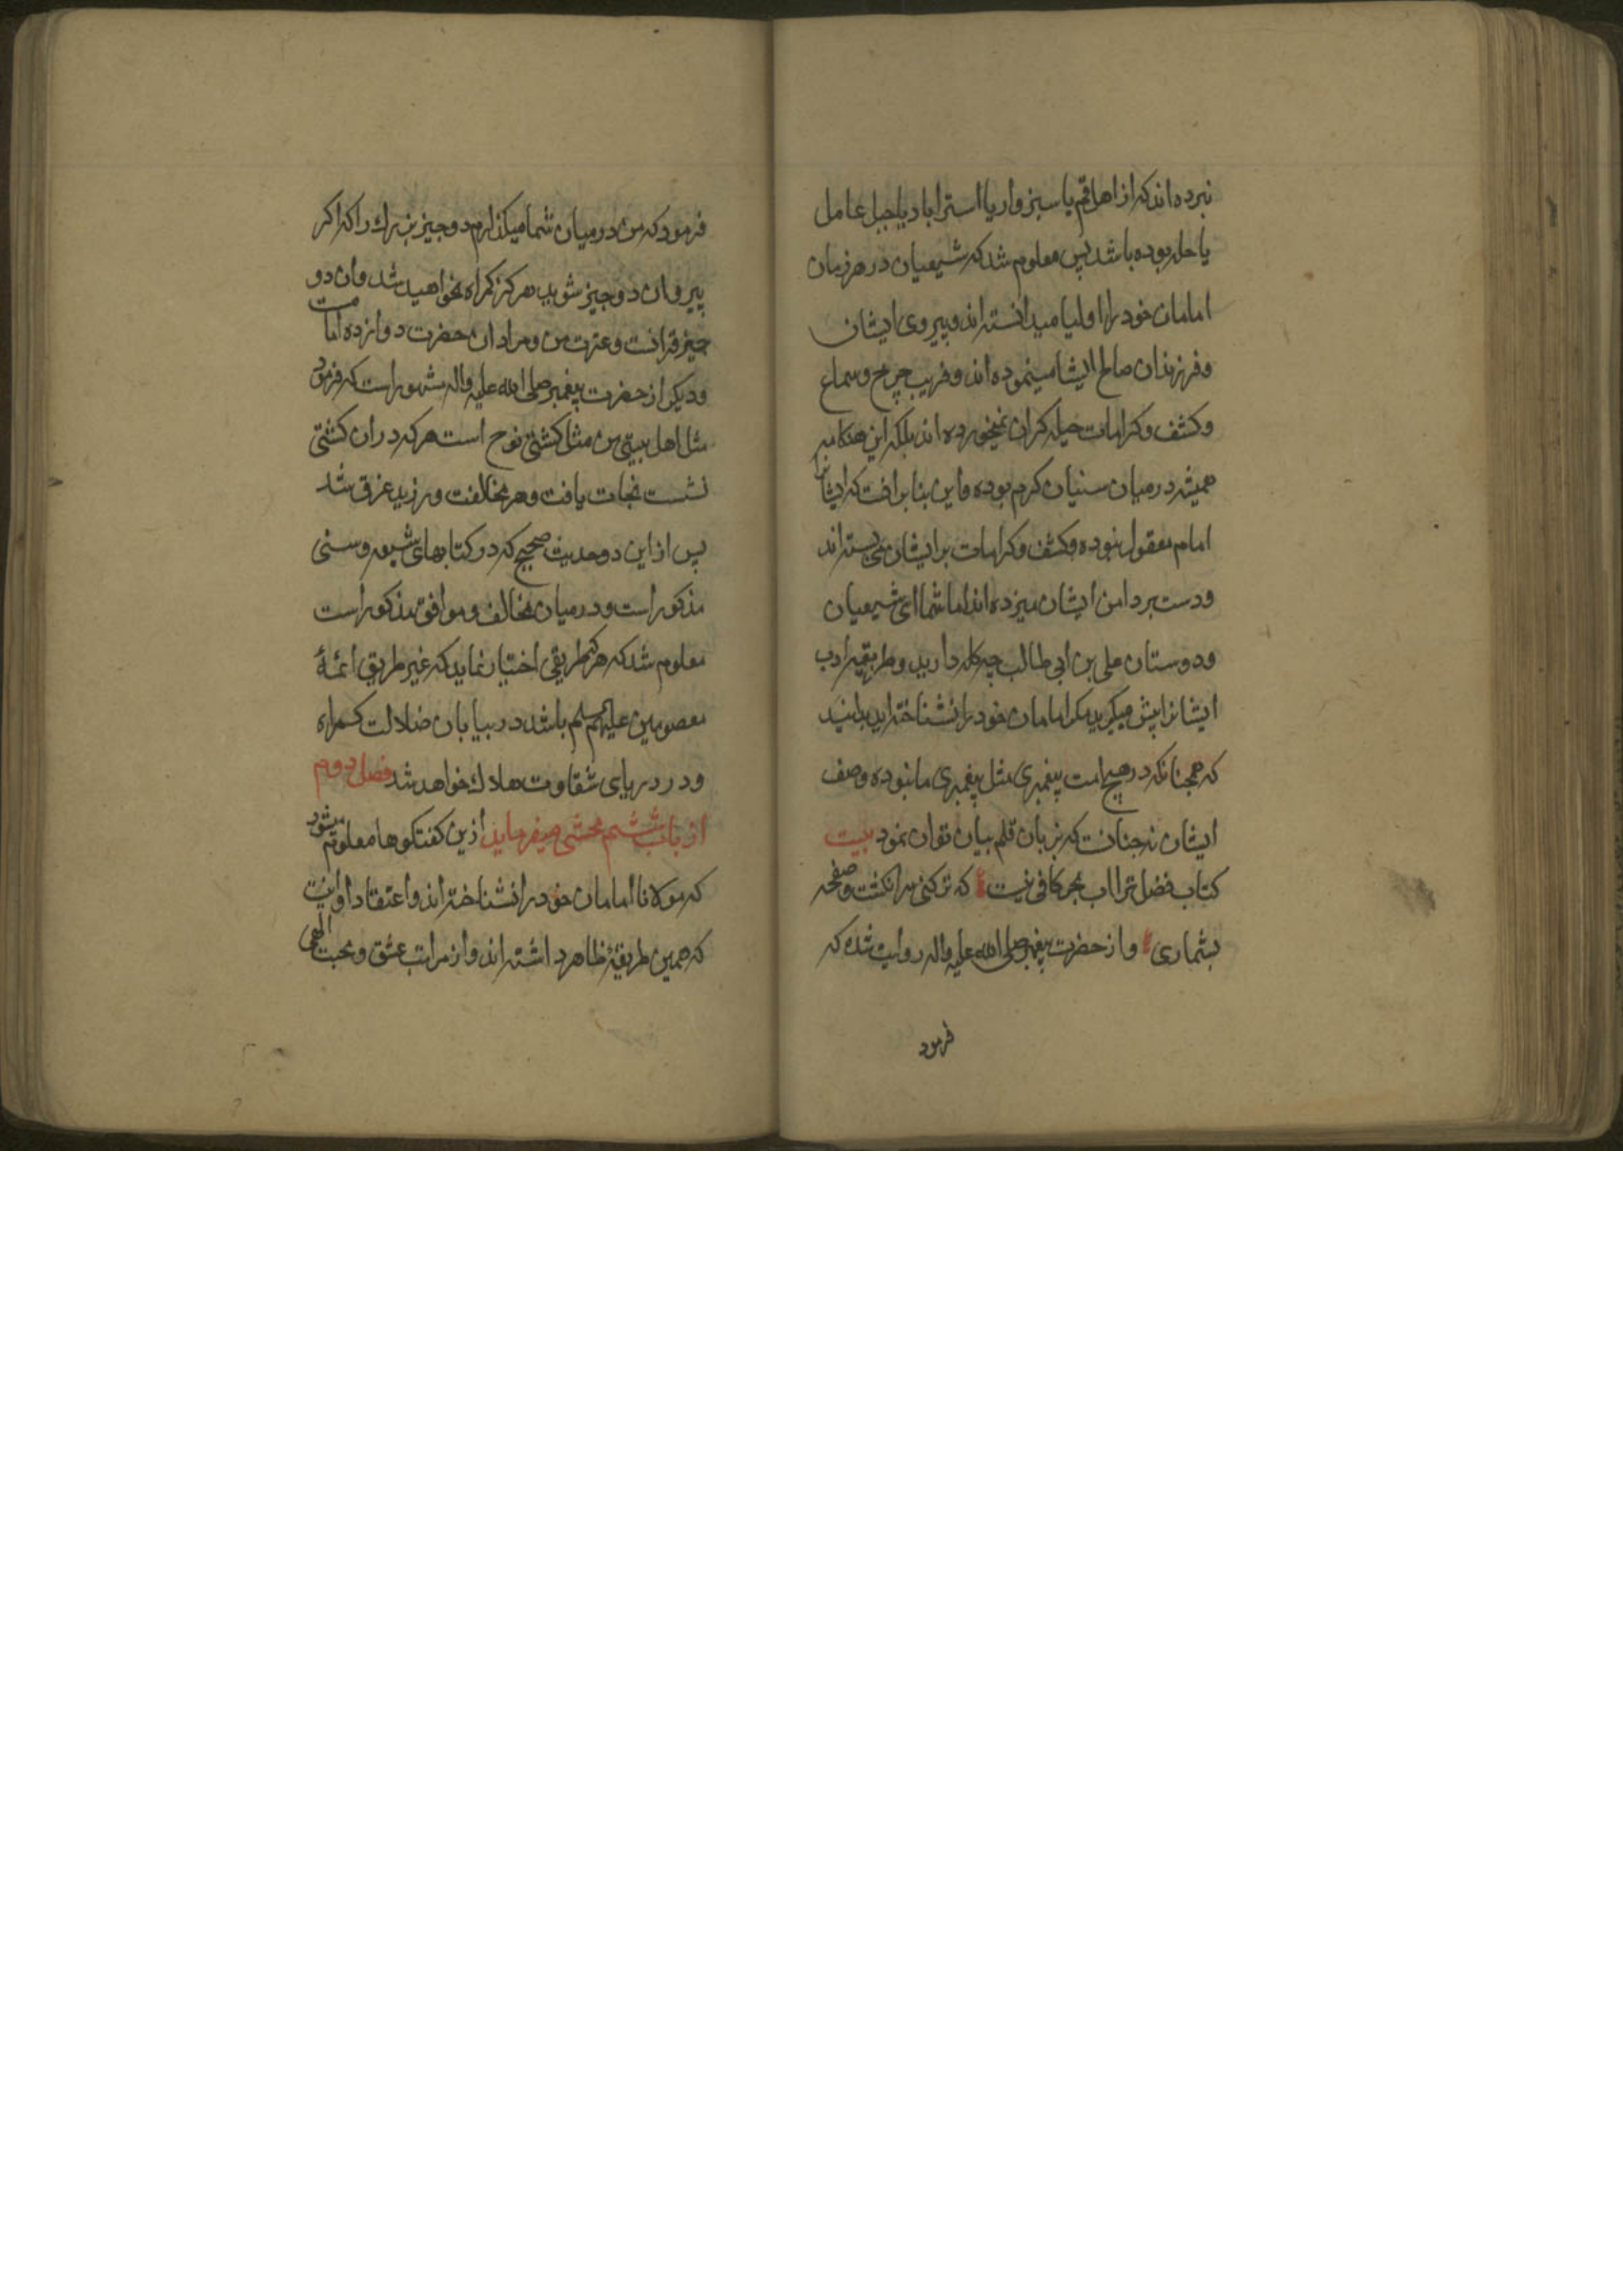 نبرده اند که از اهل قم یا سبزوار یا استراباد یا جبل عامل
یا حله بوده باشد پس معلوم شد که شیعیان در هر زمان
امامان خود را اولیا میدانسته اند و پیروی ایشان
و فرزندان صالح ایشا مینموده اند و فریب چرخ و سماع
و کشف و کرامات حیله کران نمیخورده اند بلکه این هنکامه
همیشه در میان سنیان کرم بوده و این بنا برانست که ایشانرا
امام معقول نبوده و کشف و کرامات بر ایشان می بسته اند
و دست بر دامن ایشان میزده اند اما شما ای شیعیان
و دوستان علی بن ابی طالب چه کله دارید و طریقه ادب
ایشانرا پیش میکیرید مکر امامان خود را نشناخته اید بدانید
که همچنانکه در هیچ امت پیغمبری مثل پیغمبری ما نبوده وصف
ایشان نه چنانست که بزبان قلم بیان توان نمود بیت
کتاب فضل ترا اب بحر کافی نیست که تر کنی سر انکشت و صفحه
بشماری و از حضرت پیغمبر صلی الله علیه و اله روایت شده که
فرمود
فرمود که من در میان شما میکذارم دو چیز بزرك را که اکر
پیرو ان دو چیز شوید هرکز کمراه نخواهید شد و ان دو
چیز قرانست و عترت من و مراد ان حضرت دوازده امامست
و دیکر از حضرت پیغمبر صلی الله علیه و اله مشهور است که فرمود
مثل اهل بیتی من مثل کشتی نوح است هر که در ان کشتی
نشست نجات یافت و هر مخالفت ورزید غرق شد
پس از این دو حدیث صحیح که در کتابهای شیعه و سنی
مذکور است و در میان مخالف و موافق مذکور است
معلوم شد که هر که طریقی اختیار نماید که غیر طریق ائمهٔ
معصومین علیهم السلم باشد در بیابان ضلالت کمراه
و در دریای شقاوت هلاك خواهد شد فصل دوم
از باب ششم محشی میفرماید ازین کفتکوها معلوم میشود
که مولانا امامان خود را نشناخته اند و اعتقاد او اینست
که همین طریقهٔ ظاهر داشته اند و از مراتب عشق و محبت الهی